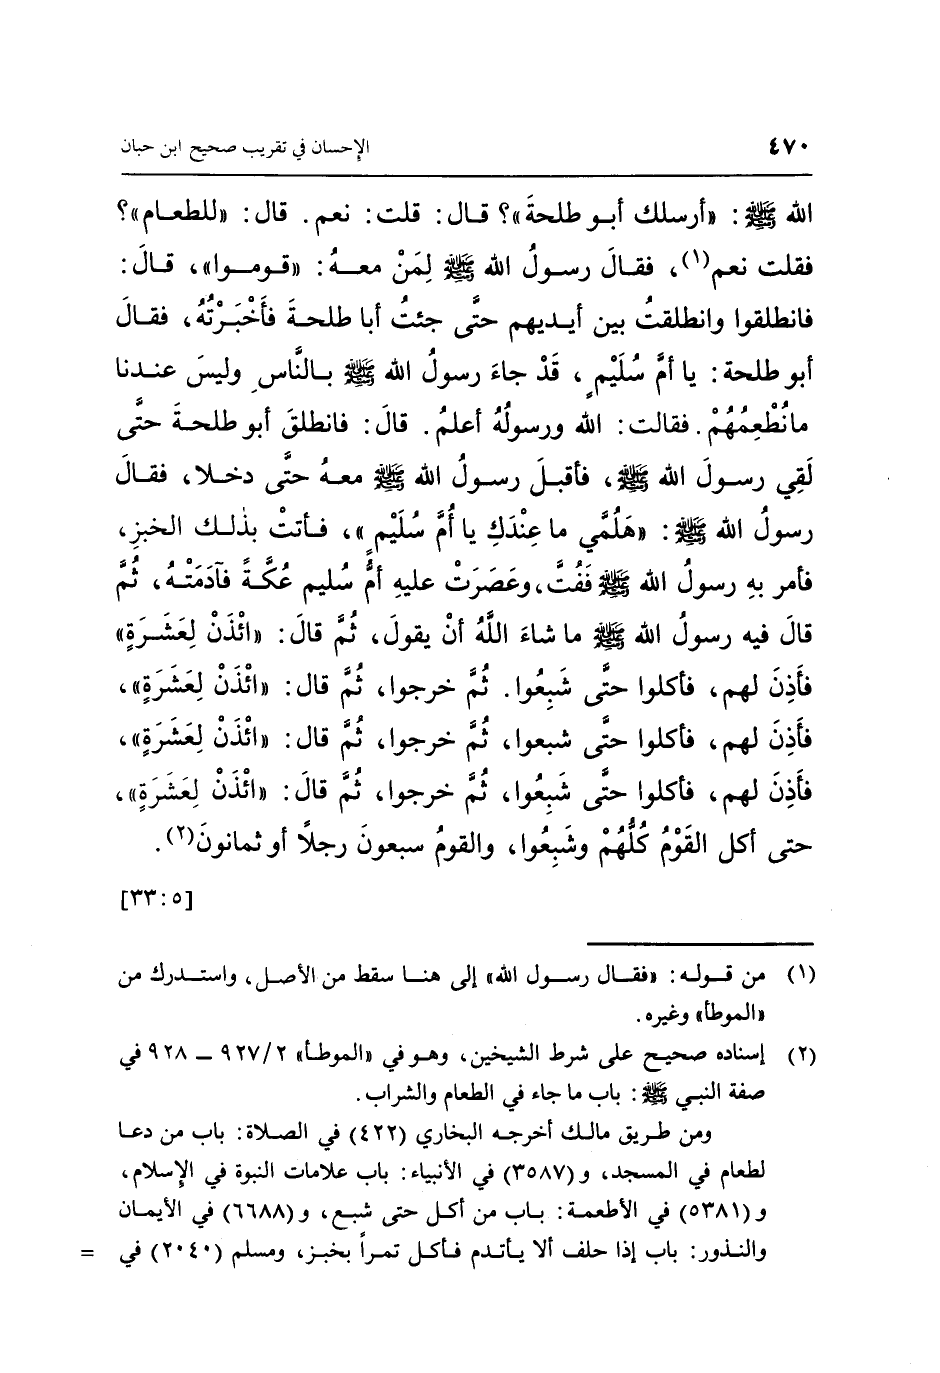 ٤٧٠ الإحسان في تقريب صحيح ابن حبان
الله ﷺ: «أرسلك أبو طلحةَ»؟ قال: قلت: نعم. قال: «للطعام»؟
فقلت نعم(١)، فقالَ رسولُ الله ﷺ لِمَنْ معهُ: «قوموا»، قالَ:
فانطلقوا وانطلقتُ بين أيديهم حتَّى جئتُ أبا طلحةَ فأَخْبَرْتُهُ، فقالَ
أبو طلحة: يا أمَّ سُلَيْمٍ، قَدْ جاءَ رسولُ الله ﷺ بالنَّاسِ وليسَ عندنا
مانُطْعِمُهُمْ. فقالت: الله ورسولُهُ أعلمُ. قالَ: فانطلقَ أبو طلحةَ حتَّى
لَقِي رسولَ الله ﷺ، فأقبلَ رسولُ الله ﷺ معهُ حتَّى دخلا، فقالَ
رسولُ الله ﷺ: «هَلُمَّي ما عِنْدَكِ يا أُمَّ سُلَيْمٍ»، فأتتْ بذٰلك الخبزِ،
فأمر بهِ رسولُ الله ﷺ فَفُتَّ، وعَصَرَتْ عليهِ أمُّ سُليم عُكَّةً فآدَمَتْهُ، ثُمَّ
قالَ فيه رسولُ الله ﷺ ما شاءَ اللَّهُ أنْ يقولَ، ثُمَّ قالَ: «ائْذَنْ لِعَشَرَةٍ»
فأَذِنَ لهم، فأكلوا حتَّى شَبِعُوا. ثُمَّ خرجوا، ثُمَّ قال: «ائْذَنْ لِعَشَرَةٍ»،
فأَذِنَ لهم، فأكلوا حتَّى شبعوا، ثُمَّ خرجوا، ثُمَّ قال: «ائْذَنْ لِعَشَرَةٍ»،
فأَذِنَ لهم، فأكلوا حتَّى شَبِعُوا، ثُمَّ خرجوا، ثُمَّ قالَ: «ائْذَنْ لِعَشَرَةٍ»،
حتى أكل القَوْمُ كُلُّهُمْ وشَبِعُوا، والقومُ سبعونَ رجلًا أو ثمانونَ(٢).
[٥ :٣٣]
(١) من قوله: «فقال رسول الله» إلى هنا سقط من الأصل، واستدرك من
«الموطأ» وغيره.
(٢) إسناده صحيح على شرط الشيخين، وهو في «الموطأ» ٩٢٧/٢ ــ ٩٢٨ في
صفة النبي ﷺ: باب ما جاء في الطعام والشراب.
ومن طريق مالك أخرجه البخاري (٤٢٢) في الصلاة: باب من دعا
لطعام في المسجد، و (٣٥٨٧) في الأنبياء: باب علامات النبوة في الإسلام،
و (٥٣٨١) في الأطعمة: باب من أكل حتى شبع، و (٦٦٨٨) في الأيمان
والنذور: باب إذا حلف ألا يأتدم فأكل تمراً بخبز، ومسلم (٢٠٤٠) في =